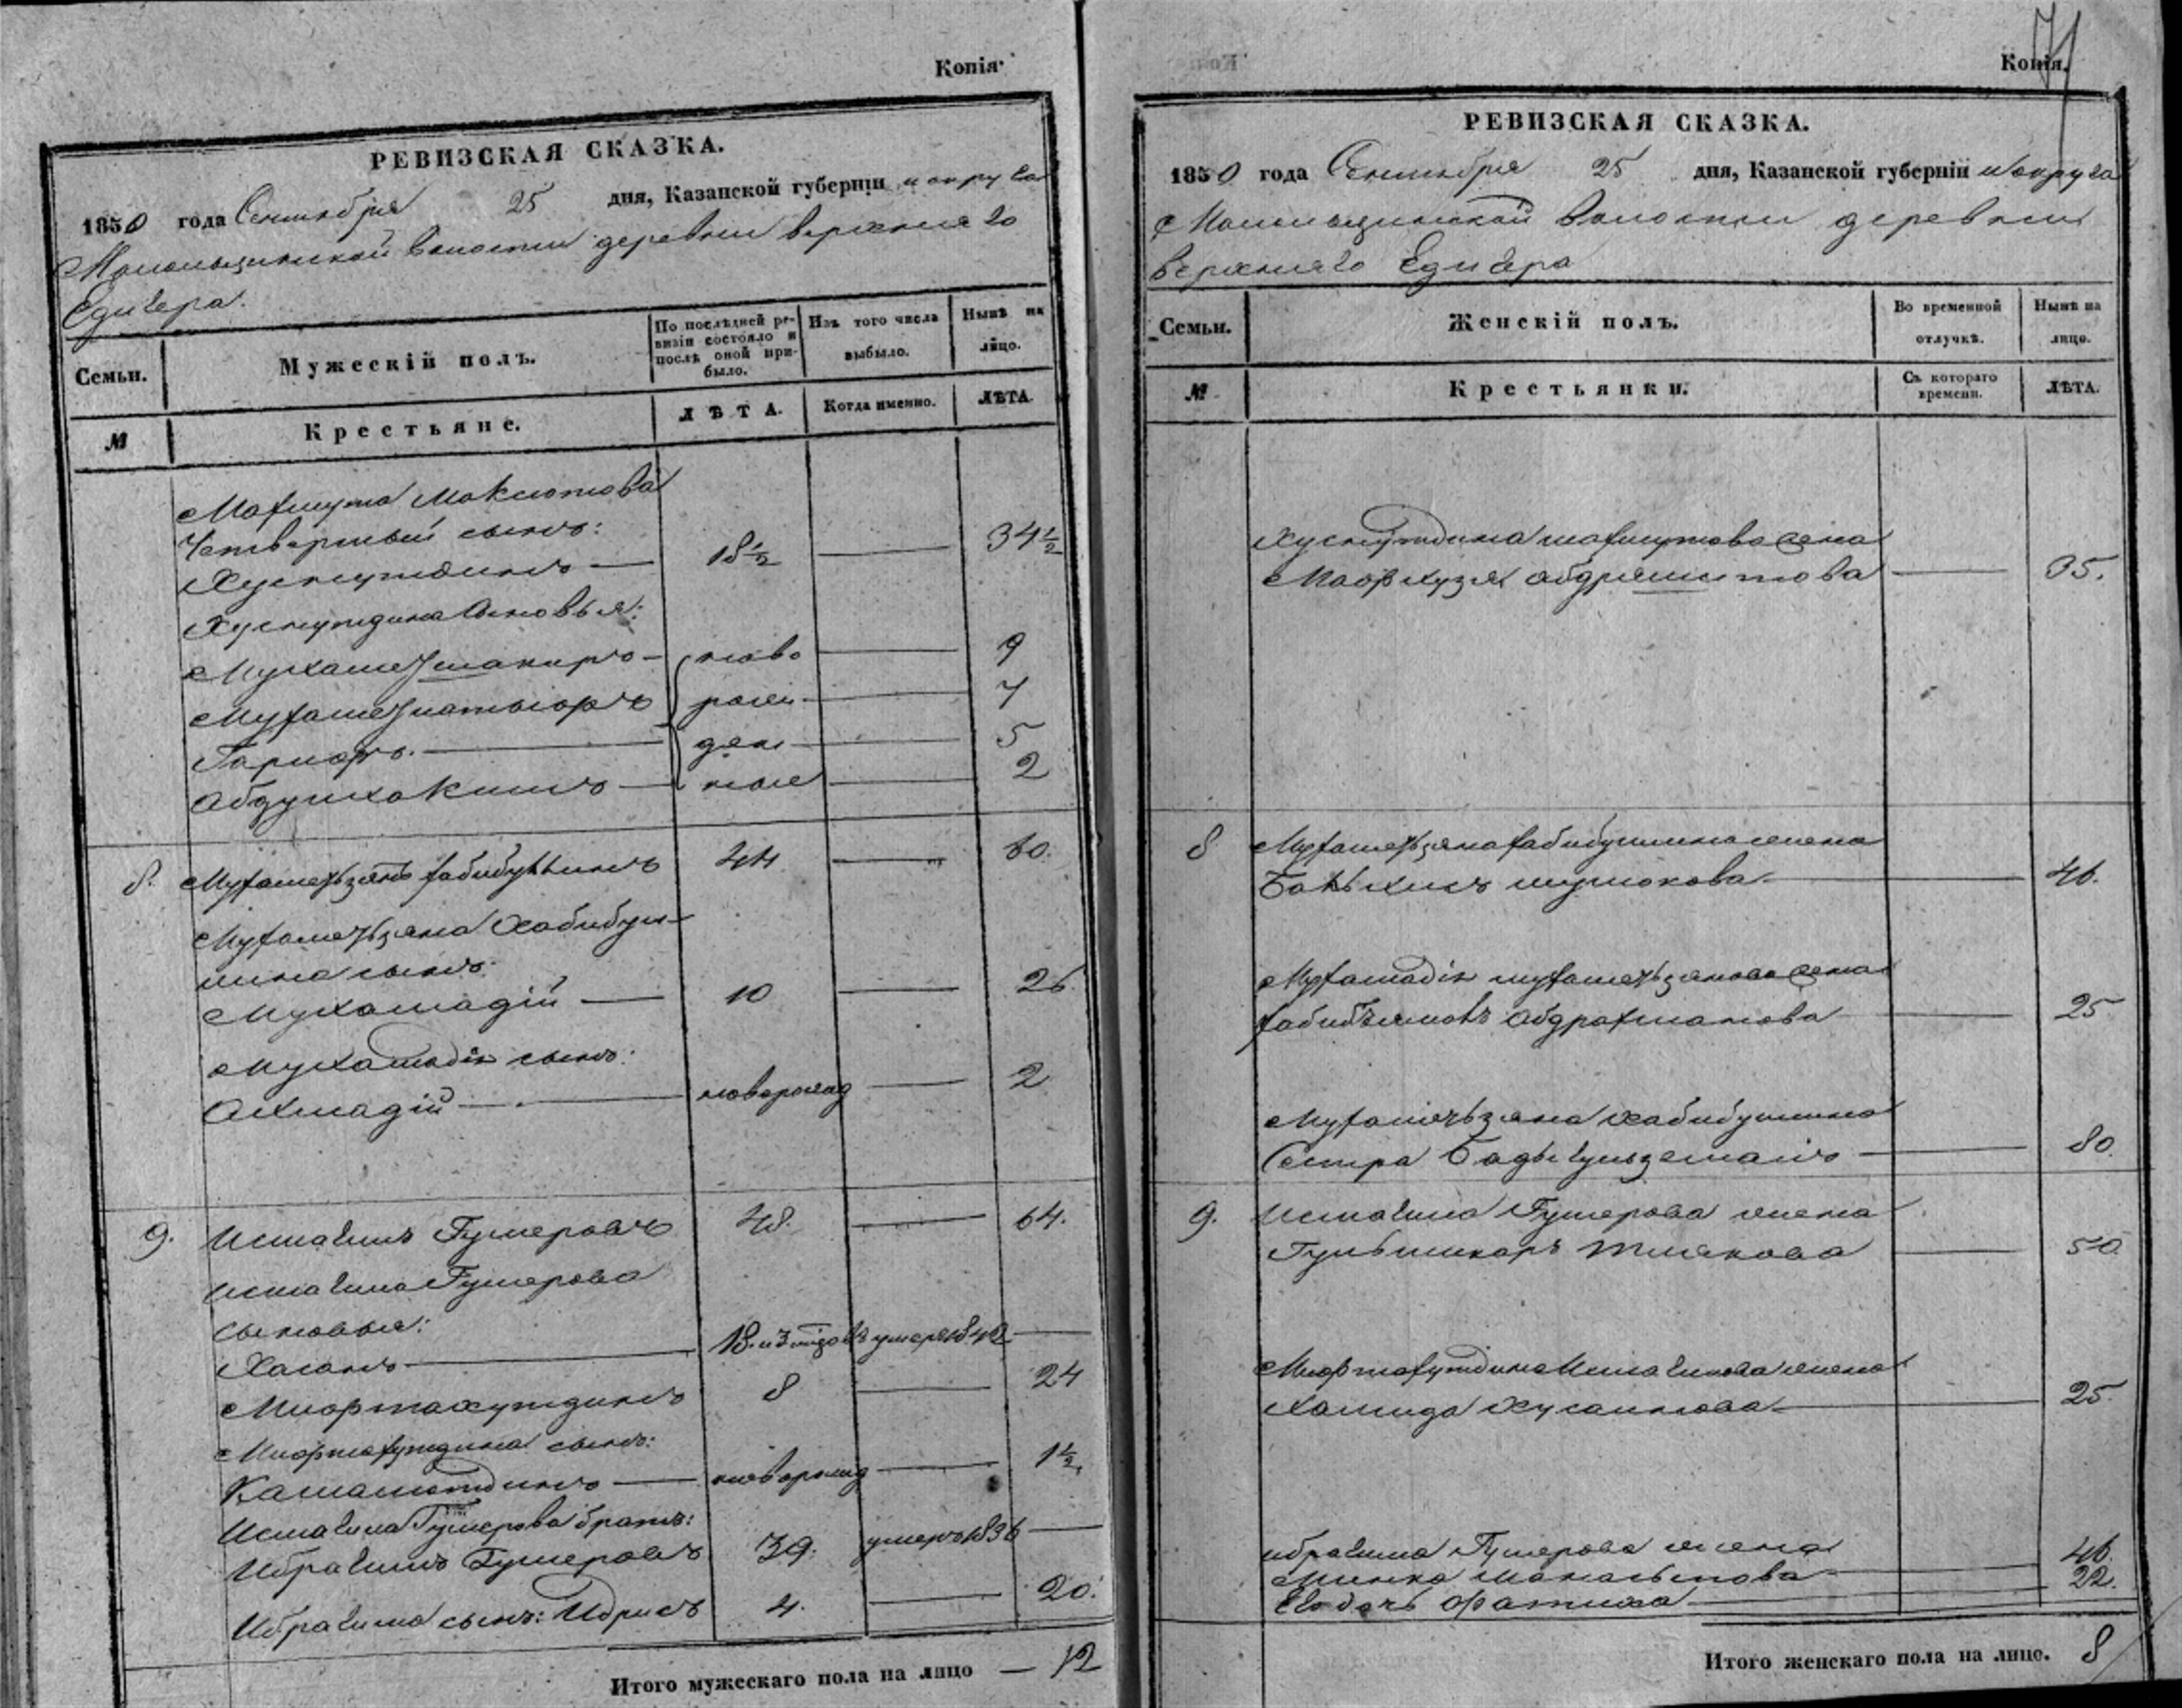 Копія
РЕВИЗСКАЯ СКАЗКА.
1850 года Сентября 25 дня, Казанской губерніи и округа
волости деревни верхняго
Едигера.
Семьи.
Мужескій полъ.
По послѣдней ре-
визіи состояло и
послѣ оной при-
было.
Изъ того числа
выбыло.
Нынѣ на
лицо.
№
Крестьяне.
ЛѢТА.
Когда именно.
ЛѢТА.
Махмута Максютова
Четвертый сынъ:
Хуснутдинъ — 18½ — 34½
Хуснутдина сыновья:
Мухаметшакиръ — ново 9
рож 7
ден 5
Абдулхакимъ — ные 2
8. Мухаметьзянъ Хабибуллинъ 44 — 60.
Мухаметьзяна Хабибул-
лина сынъ:
Мухамадій — 10 — 26
Мухамадія сынъ:
Ахмадій — новорожд — 2
9. Исмагилъ Гумеровъ 48. — 64.
Исмагила Гумерова
сыновья:
Хасанъ — 18. умеръ 1842 —
Миортахутдинъ 8 — 24
Миортахутдина сынъ:
Камалютдинъ — новорожд — 1½
Исмагила Гумерова братъ:
Ибрагимъ Гумеровъ 39. умеръ 1836 —
Ибрагима сынъ: Идрисъ 4. — 20.
Итого мужескаго пола на лицо — 12
71
Копія.
РЕВИЗСКАЯ СКАЗКА.
1850 года Сентября 25 дня, Казанской губерніи и округа
волости деревни
верхняго Едигера
Семьи.
Женскій полъ.
Во временной
отлучкѣ.
Нынѣ на
лицо.
№
Крестьянки.
Съ котораго
времени.
ЛѢТА.
Хуснутдина Махмутова жена
абдряшитова — 35.
8 Мухаметьзяна Хабибуллина жена
— 46.
Мухамадія Мухаметьзянова жена
Абдрахманова — 25
Мухаметьзяна Хабибуллина
Сестра Бадыгульземалъ — 80.
9. Исмагила Гумерова жена
— 50
Миортахутдина Исмагилова жена
Хамида Хусаинова — 25.
Ибрагима Гумерова жена
— 46.
Ево дочь Фатиха — 22.
Итого женскаго пола на лицо. 8